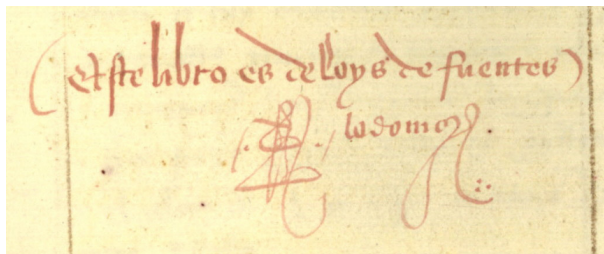 (este libro es de loys de fuentes)